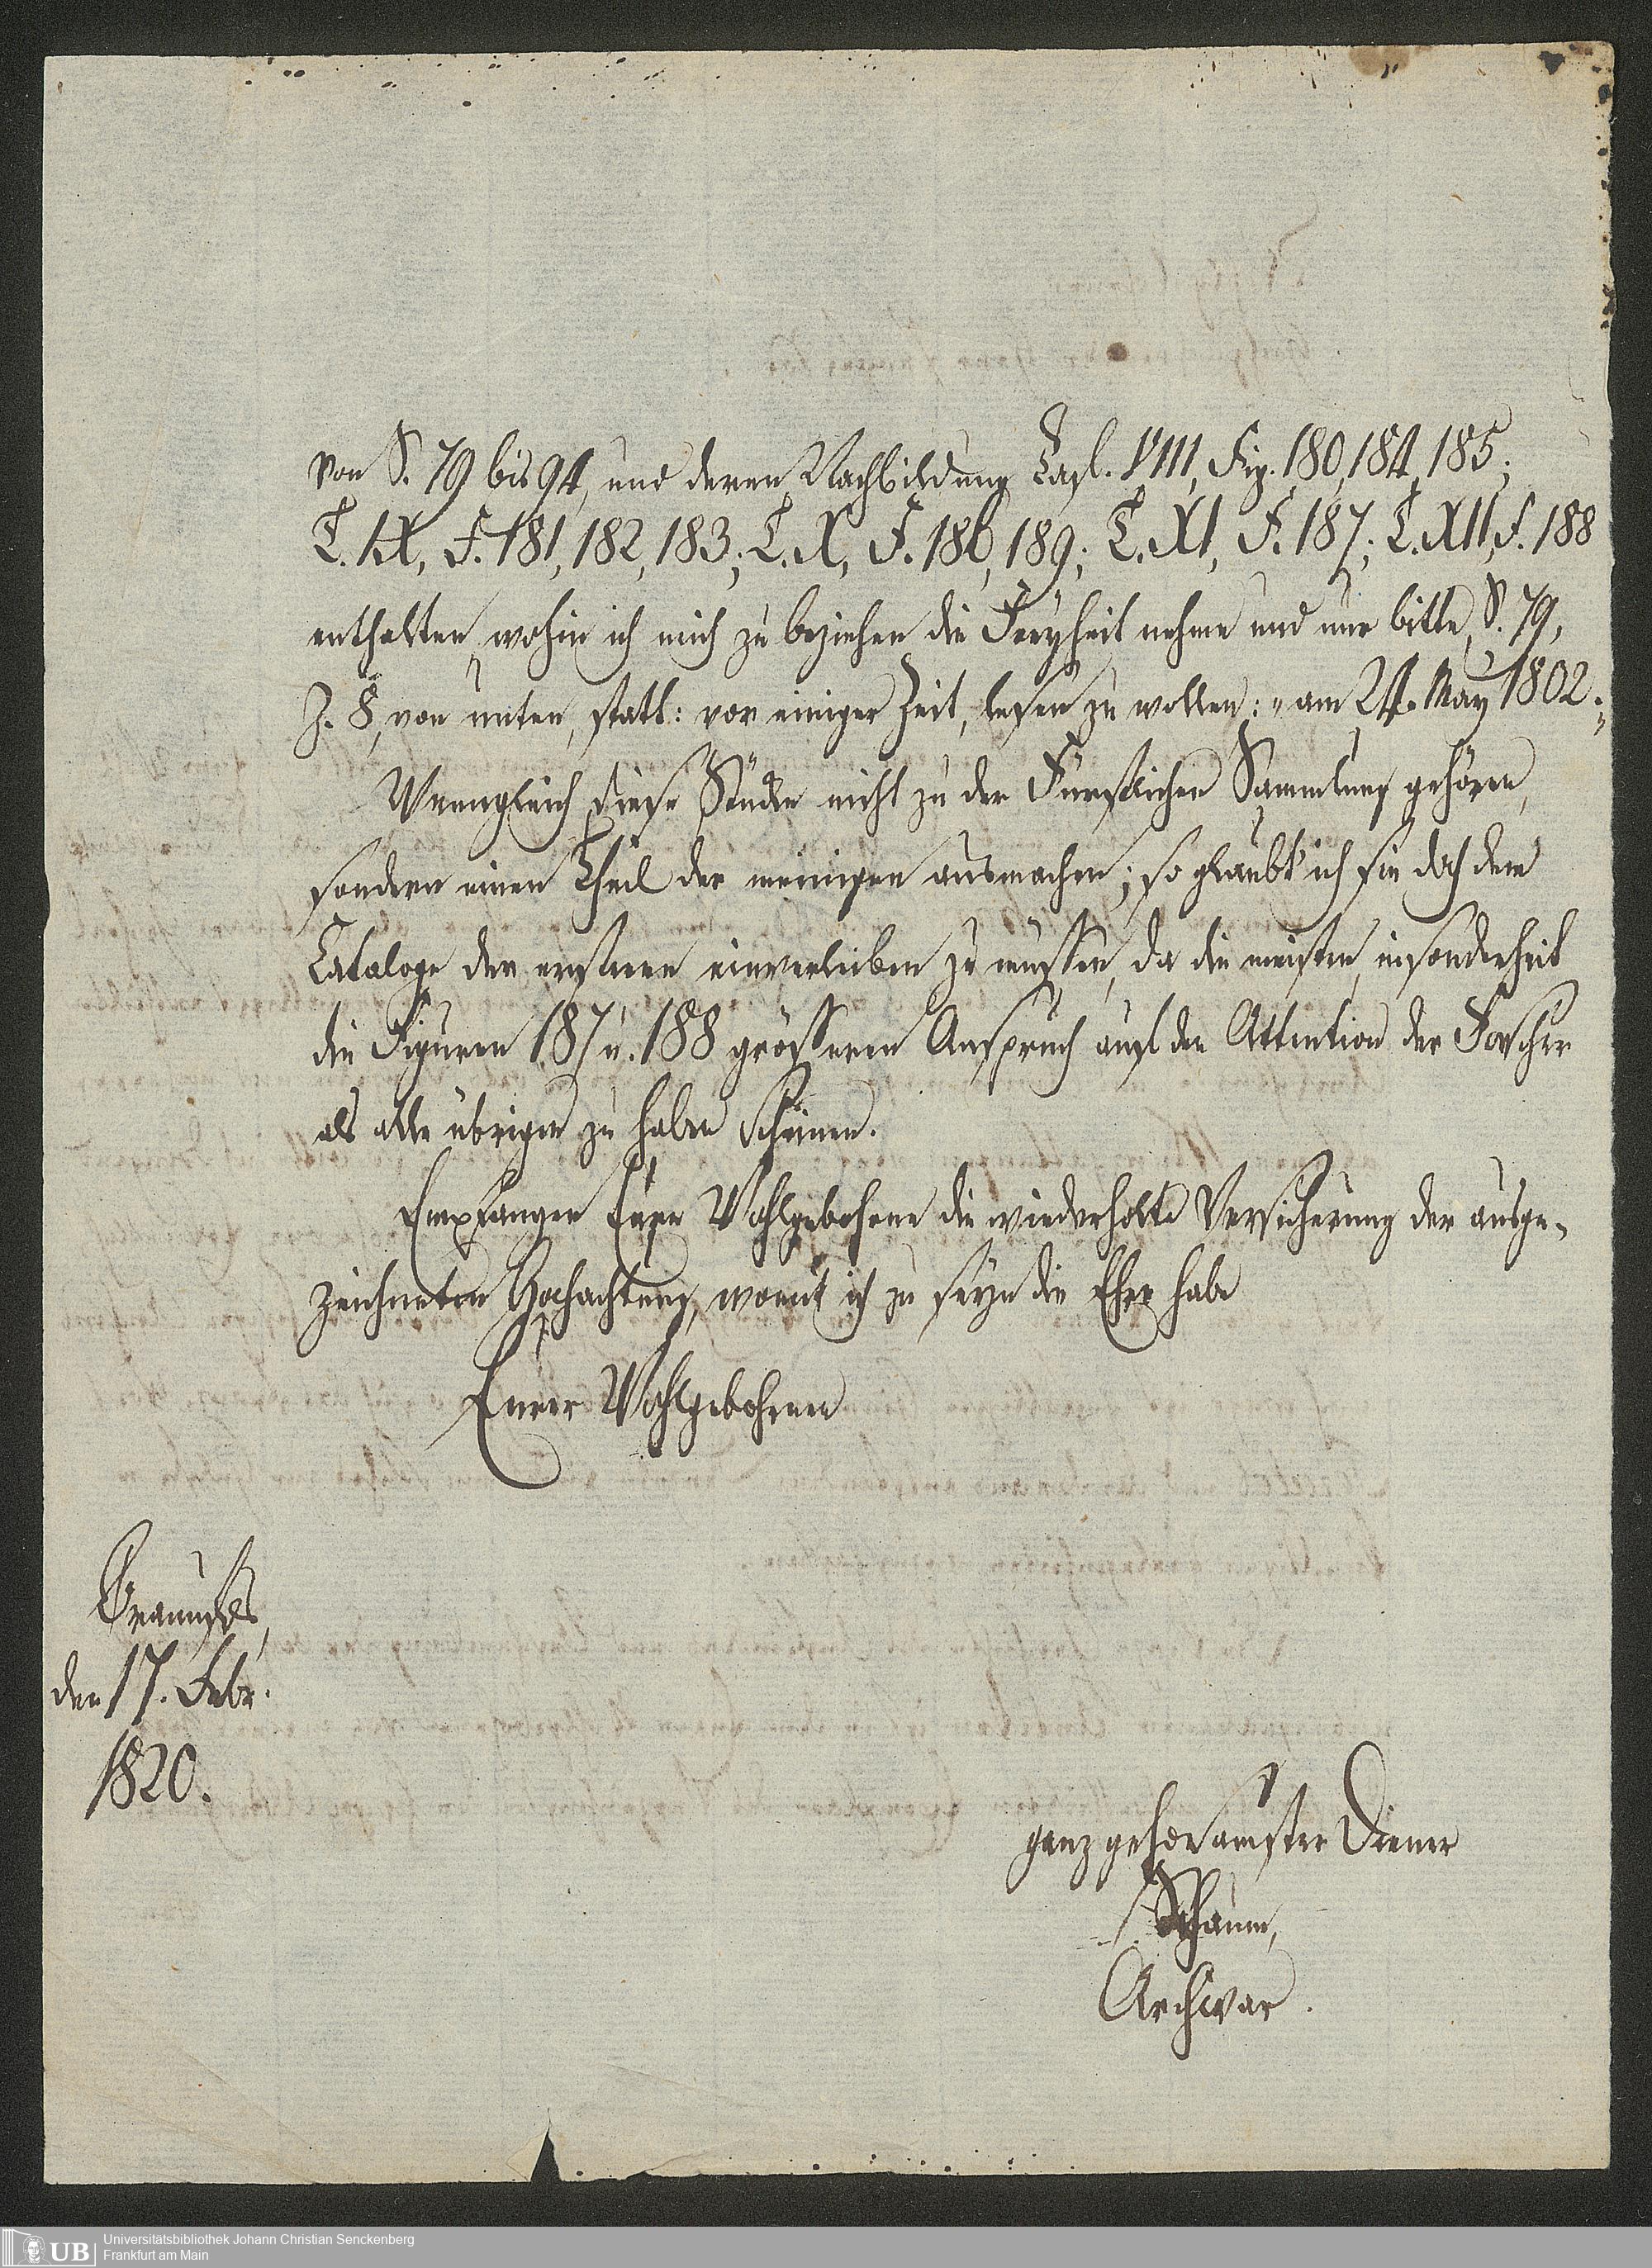 von S. 79 bis 94, und deren Nachbildung Tafl. VIII, Fig. 180, 184, 185;
T. IX, F. 181, 182, 183; T. X, F. 186, 189; T. XI, F. 187; T. XII, F. 188
enthalten, wohin ich mich zu beziehen die Freyheit nehme und nur bitte, S. 79,
Z. 8, von unten, statt: vor einiger Zeit, lesen zu wollen: „am 24. May 1802.„
Wenngleich diese Stücke nicht zu der Fürstlichen Sammlung gehören,
sondern einen Theil der meinigen ausmachen; so glaubt' ich sie doch dem
Cataloge der ersteren einverleiben zu müssen, da die meisten, insonderheit
die Figuren 187 u. 188 grösseren Anspruch auf die Attention der Forscher
als alle übrigen zu haben scheinen.
Empfangen Eure Wohlgebohrne die wiederholte Versicherung der ausge-
zeichneten Hochachtung, womit ich zu seyn die Ehre habe
Eurer Wohlgebohrnen
Braunfels,
den 17. Febr.
1820.
ganz gehorsamster Diener
Schaum,
Archivar.
UB
Universitätsbibliothek Johann Christian Senckenberg
Frankfurt am Main